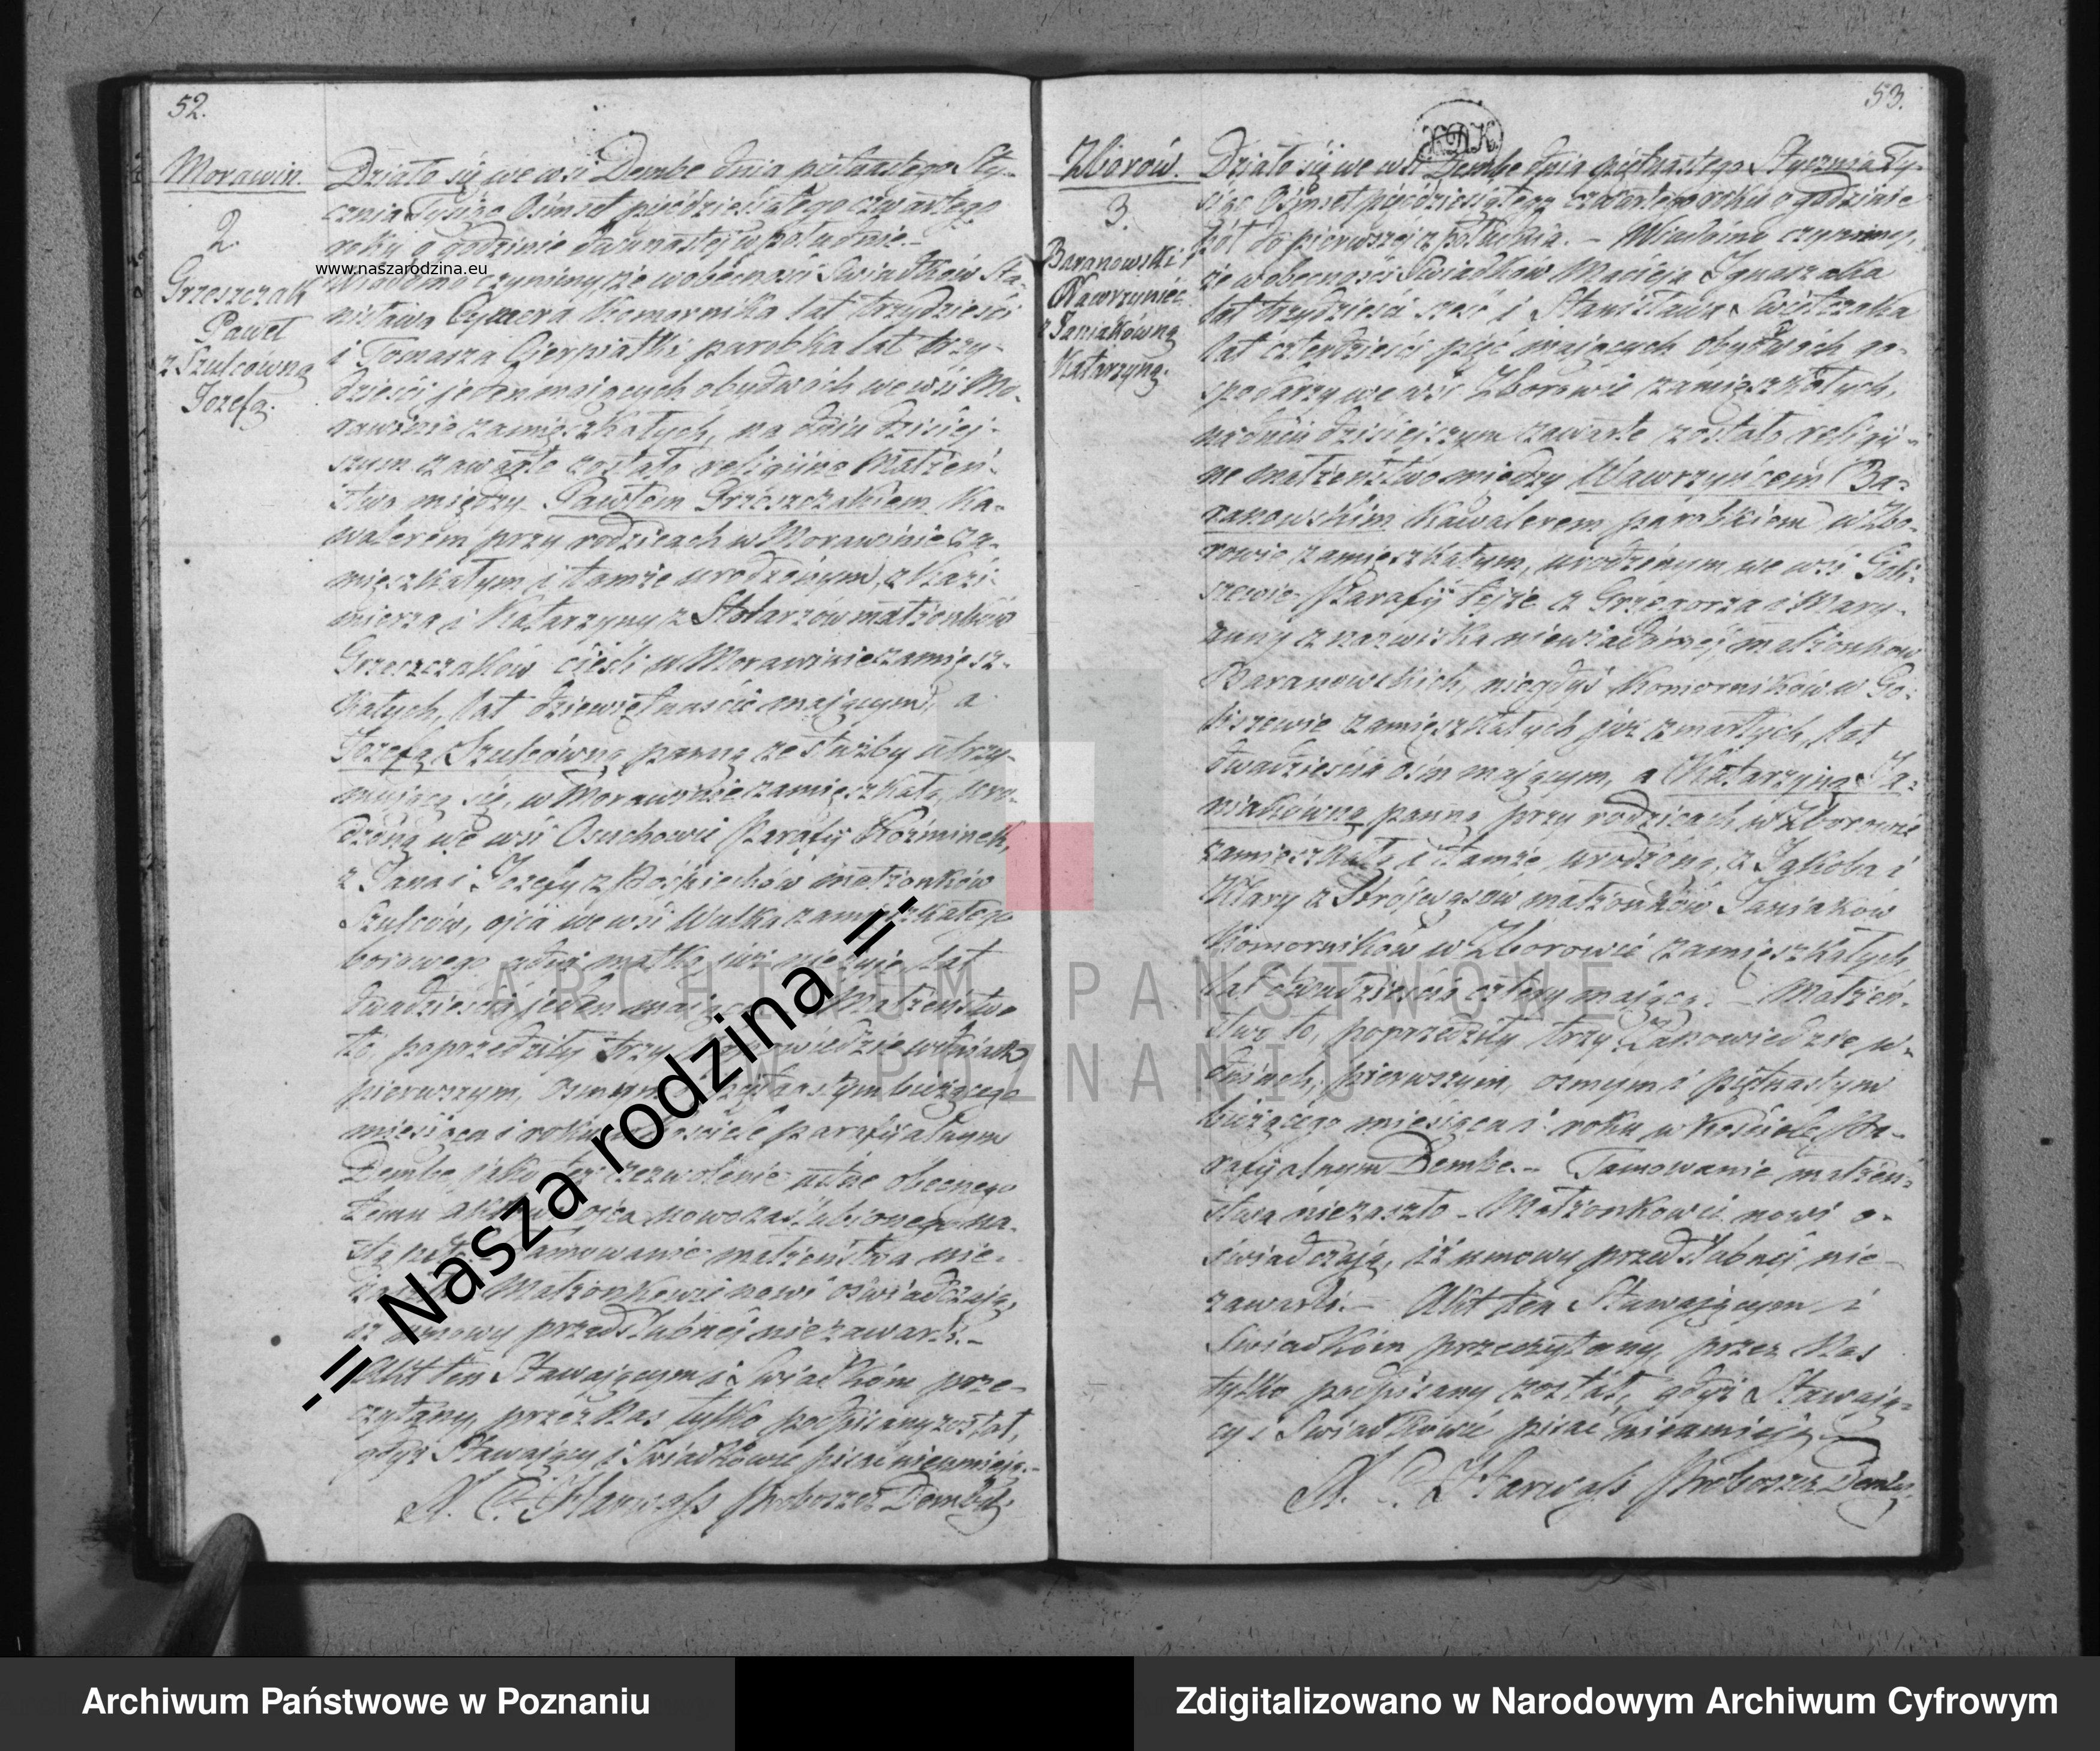 52.
Morawin.
2.
Grzeszczak
Paweł
z Szulcówną
Jozefą.
Działo się we wsi Dembe dnia piętnastego Sty-
cznia Tysiąc Ośmset pięćdziesiątego czwartego
roku o godzinie dwunastej w południe.-
www.naszarodzina.eu
Wiadomo czyniemy, że w obecności Świadków Sta-
nisława Komornika lat trzydzieści
i Tomasza Cierpiatki parobka lat trzy-
dzieści jeden maiących obydwóch we wsi Mo-
rawinie zamięszkałych, na dniu dzisiej-
szym zawarte zostało religijne Małżeń-
stwo między Pawłem Grzeszczakiem Ka-
walerem przy rodzicach w Morawinie za-
mięszkałym i tamże urodzonym, z Kazi-
mierza i Katarzyny z Stolarzów małżonków
Grzeszczaków cieśli w Morawinie zamięsz-
kałych, lat dziewiętnaście mającym, a
Jozefą Szulcówną panną ze służby utrzy-
mującą się, w Morawinie zamięszkałą, uro-
dzoną we wsi Osuchowie Parafii Koźminek,
z Jana i Jozefy z Pośpiechów małżonków
Szulców, ojca we wsi Wulka zamięszkałego
borowego gdyż matka już nieżyje, lat
dwadzieścia jeden mającą. Małżeństwo
to, poprzedziły trzy Zapowiedzie w dniach
pierwszym, osmym i piętnastym bieżącego
miesiąca i roku w Kościele parafijalnym
Dembe jako też zezwolenie ustne obecnego
temu aktowi ojca nowozaślubionego na-
Tamowanie małżeństwa nie-
zaszło. Małżonkowie nowi oświadczają,
iż umowy przedślubnej niezawarli.-
Akt ten Stawającym i Świadkom prze-
czytany, przez Nas tylko podpisany został,
gdyż Stawający i Świadkowie pisać nieumieją.-
Proboszcz Dembski
-= Nasza rodzina =-
ARCHIWUM PAŃSTWOWE
W POZNANIU
53.
Zborów.
3.
Baranowski
Wawrzyniec
z Janiakówną
Katarzyną.
Działo się we wsi Dembe dnia piętnastego Stycznia Ty-
siąc Ośmset pięćdziesiątego czwartego roku o godzinie
pół do pierwszej z południa. - Wiadomo czyniemy,
że w obecności Świadków Macieja Ignaszaka
lat trzydzieści sześć i Stanisława
lat czterdzieści pięć mających obydwóch go-
spodarzy we wsi Zborowie zamięszkałych,
na dniu dzisiejszym zawarte zostało religij-
ne małżeństwo między Wawrzyńcem Ba-
ranowskim Kawalerem parobkiem w Zbo-
rowie zamięszkałym, urodzonym we wsi Goli-
szewie Parafii tejże z Grzegorza i Mary-
anny z nazwiska niewiadomej małżonków
Baranowskich, niegdyś Komorników w Go-
liszewie zamięszkałych już zmarłych, lat
dwadzieścia osm mającym, a Katarzyną Ja-
niakówną panną przy rodzicach w Zborowie
zamięszkałą i tamże urodzoną, z Jakoba i
Klary z małżonków Janiaków
Komorników w Zborowie zamięszkałych
lat dwadzieścia cztery mającą. - Małżeń-
stwo to, poprzedziły trzy Zapowiedzie w-
dniach, pierwszym, osmym i piętnastym
bieżącego miesiąca i roku w Kościele Pa-
rafijalnym Dembe.- Tamowanie małżeń-
stwa niezaszło - Małżonkowie nowi o-
świadczają, iż umowy przedślubnej nie
zawarli.- Akt ten Stawającym i
Świadkom przeczytany, przez Nas
tylko podpisany został, gdyż Stawają-
cy i Świadkowie pisać nieumieją.
Proboszcz Dembski
Archiwum Państwowe w Poznaniu
Zdigitalizowano w Narodowym Archiwum Cyfrowym